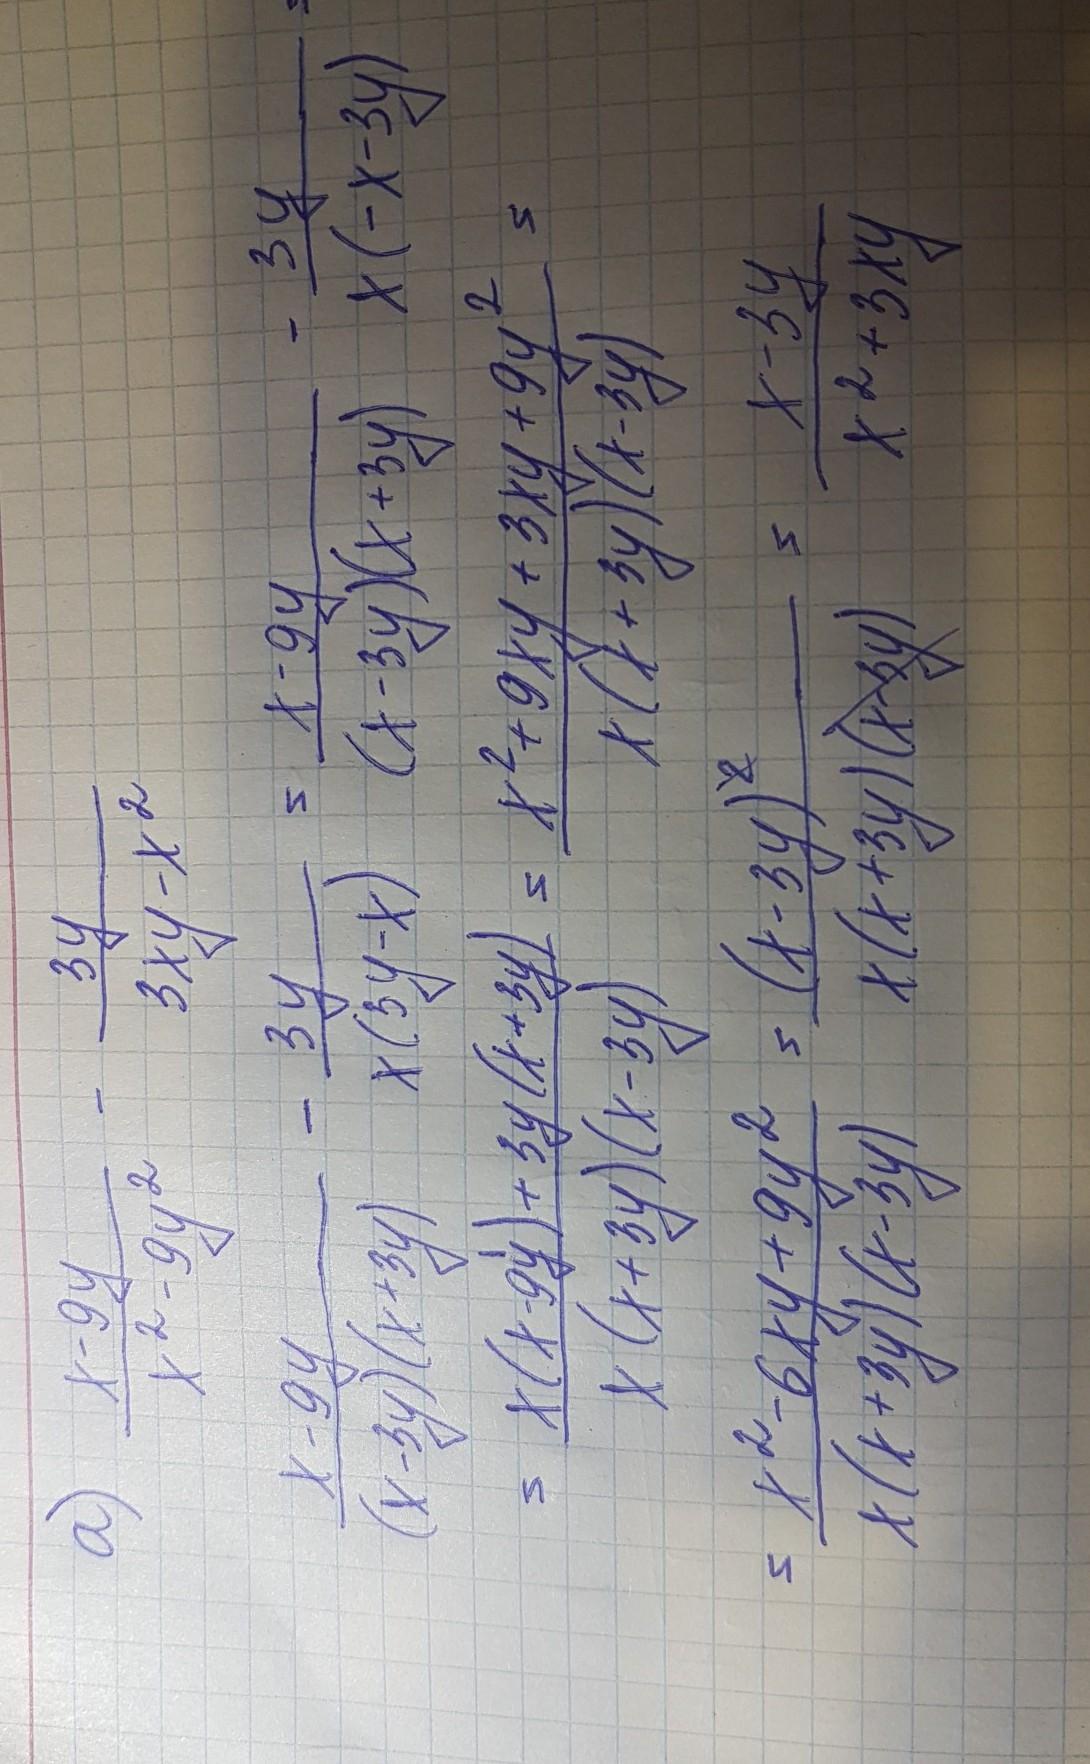 а) (x-9y)/(x²-9y²) - 3y/(3xy-x²)
(x-9y)/((x-3y)(x+3y)) - 3y/(x(3y-x)) = (x-9y)/((x-3y)(x+3y)) - 3y/(x(-x-3y)) =
= (x(x-9y)+3y(x+3y))/(x(x+3y)(x-3y)) = (x²+9xy+3xy+9y²)/(x(x+3y)(x-3y)) =
= (x²-6xy+9y²)/(x(x+3y)(x-3y)) = (x-3y)²/(x(x+3y)(x-3y)) = (x-3y)/(x²+3xy)